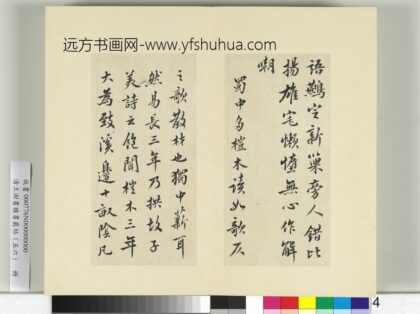 远方书画网-www.yfshuhua.com
語鷰定新巢旁人錯比
揚雄宅懶惰無心作解
嘲
蜀中多榿木讀如歌仄
之歌散材也獨中薪耳
然易長三年乃拱故子
美詩云飽聞榿木三年
大為致溪邊十畝陰凡
4